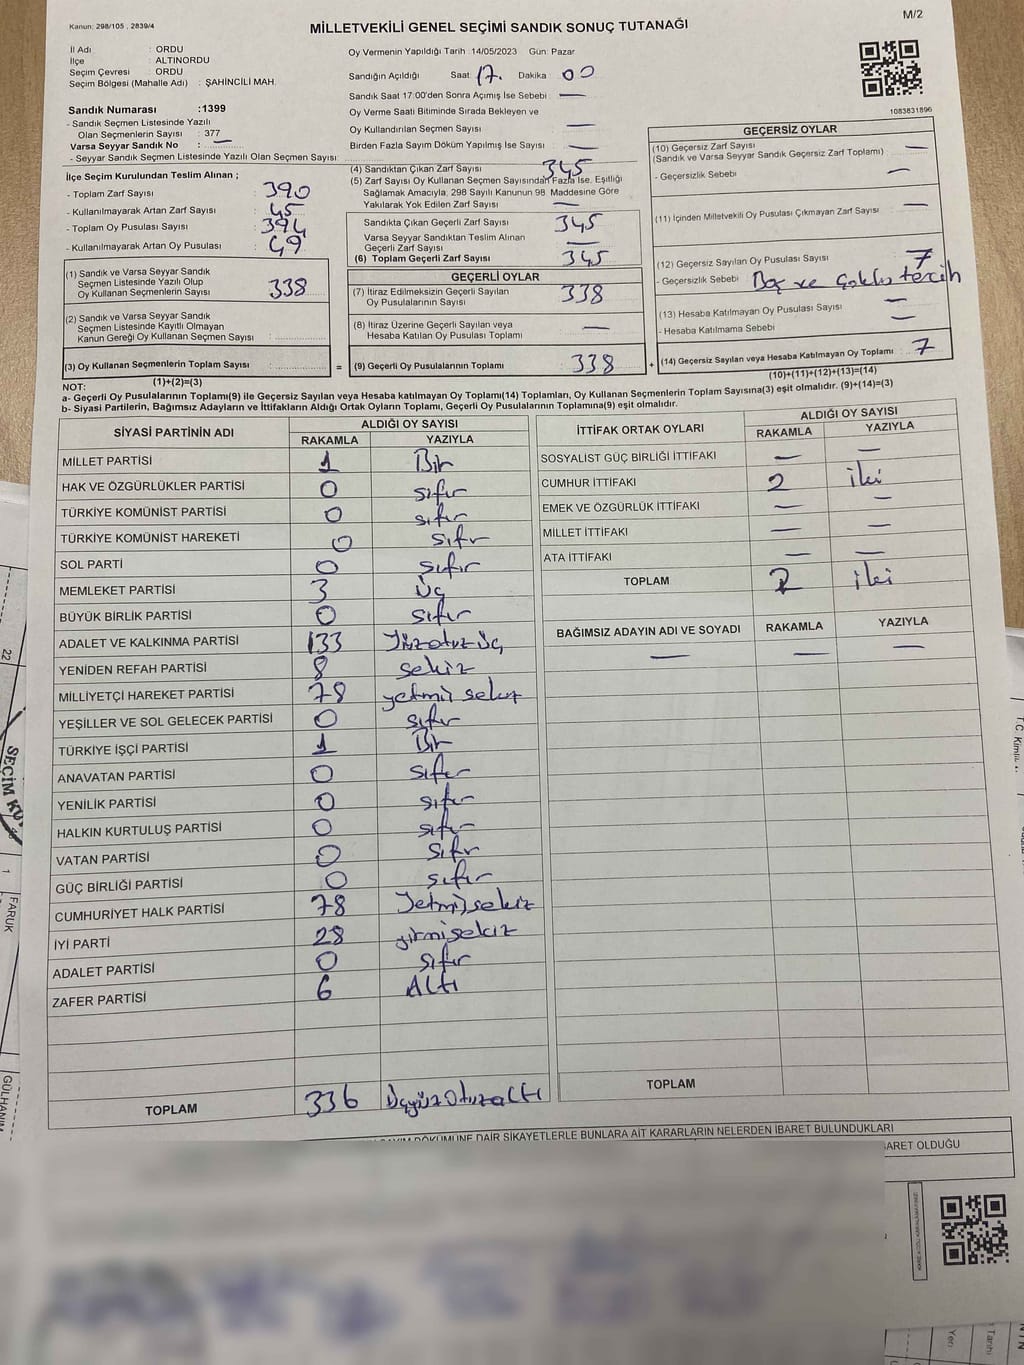 Kanun: 298/105 , 2839/4
M/2
MİLLETVEKİLİ GENEL SEÇİMİ SANDIK SONUÇ TUTANAĞI
İl Adı : ORDU
İlçe : ALTINORDU
Seçim Çevresi : ORDU
Seçim Bölgesi (Mahalle Adı) : ŞAHİNCİLİ MAH.
Sandık Numarası :1399
- Sandık Seçmen Listesinde Yazılı
Olan Seçmenlerin Sayısı : 377
Varsa Seyyar Sandık No : —
- Seyyar Sandık Seçmen Listesinde Yazılı Olan Seçmen Sayısı:
İlçe Seçim Kurulundan Teslim Alınan ;
- Toplam Zarf Sayısı : 390
- Kullanılmayarak Artan Zarf Sayısı : 45
- Toplam Oy Pusulası Sayısı : 394
- Kullanılmayarak Artan Oy Pusulası : 49
(1) Sandık ve Varsa Seyyar Sandık
Seçmen Listesinde Yazılı Olup
Oy Kullanan Seçmenlerin Sayısı : 338
(2) Sandık ve Varsa Seyyar Sandık
Seçmen Listesinde Kayıtlı Olmayan
Kanun Gereği Oy Kullanan Seçmen Sayısı :
(3) Oy Kullanan Seçmenlerin Toplam Sayısı :
(1)+(2)=(3)
Oy Vermenin Yapıldığı Tarih 14/05/2023 Gün: Pazar
Sandığın Açıldığı Saat: 17. Dakika : 00
Sandık Saat 17:00'den Sonra Açımış İse Sebebi : —
Oy Verme Saati Bitiminde Sırada Bekleyen ve
Oy Kullandırılan Seçmen Sayısı —
Birden Fazla Sayım Döküm Yapılmış İse Sayısı : —
(4) Sandıktan Çıkan Zarf Sayısı : 345
(5) Zarf Sayısı Oy Kullanan Seçmen Sayısından Fazla İse, Eşitliği
Sağlamak Amacıyla, 298 Sayılı Kanunun 98. Maddesine Göre
Yakılarak Yok Edilen Zarf Sayısı : —
Sandıkta Çıkan Geçerli Zarf Sayısı : 345
Varsa Seyyar Sandıktan Teslim Alınan
Geçerli Zarf Sayısı : —
(6) Toplam Geçerli Zarf Sayısı : 345
GEÇERLİ OYLAR
(7) İtiraz Edilmeksizin Geçerli Sayılan
Oy Pusulalarının Sayısı : 338
(8) İtiraz Üzerine Geçerli Sayılan veya
Hesaba Katılan Oy Pusulası Toplamı : —
= (9) Geçerli Oy Pusulalarının Toplamı : 338 +
1083831896
GEÇERSİZ OYLAR
(10) Geçersiz Zarf Sayısı : —
(Sandık ve Varsa Seyyar Sandık Geçersiz Zarf Toplamı)
- Geçersizlik Sebebi : —
(11) İçinden Milletvekili Oy Pusulası Çıkmayan Zarf Sayısı : —
(12) Geçersiz Sayılan Oy Pusulası Sayısı : 7
- Geçersizlik Sebebi : Boş ve Çoklu tercih
(13) Hesaba Katılmayan Oy Pusulası Sayısı : —
- Hesaba Katılmama Sebebi : —
(14) Geçersiz Sayılan veya Hesaba Katılmayan Oy Toplamı : 7
(10)+(11)+(12)+(13)=(14)
NOT:
a- Geçerli Oy Pusulalarının Toplamı(9) ile Geçersiz Sayılan veya Hesaba katılmayan Oy Toplamı(14) Toplamları, Oy Kullanan Seçmenlerin Toplam Sayısına(3) eşit olmalıdır. (9)+(14)=(3)
b- Siyasi Partilerin, Bağımsız Adayların ve İttifakların Aldığı Ortak Oyların Toplamı, Geçerli Oy Pusulalarının Toplamına(9) eşit olmalıdır.
SİYASİ PARTİNİN ADI ALDIĞI OY SAYISI
RAKAMLA YAZIYLA
MİLLET PARTİSİ 1 Bir
HAK VE ÖZGÜRLÜKLER PARTİSİ 0 sıfır
TÜRKİYE KOMÜNİST PARTİSİ 0 sıfır
TÜRKİYE KOMÜNİST HAREKETİ 0 sıfır
SOL PARTİ 0 sıfır
MEMLEKET PARTİSİ 3 Üç
BÜYÜK BİRLİK PARTİSİ 0 sıfır
ADALET VE KALKINMA PARTİSİ 133 Yüzotuzüç
YENİDEN REFAH PARTİSİ 8 sekiz
MİLLİYETÇİ HAREKET PARTİSİ 78 yetmiş sekiz
YEŞİLLER VE SOL GELECEK PARTİSİ 0 sıfır
TÜRKİYE İŞÇİ PARTİSİ 1 Bir
ANAVATAN PARTİSİ 0 sıfır
YENİLİK PARTİSİ 0 sıfır
HALKIN KURTULUŞ PARTİSİ 0 sıfır
VATAN PARTİSİ 0 sıfır
GÜÇ BİRLİĞİ PARTİSİ 0 sıfır
CUMHURİYET HALK PARTİSİ 78 Yetmişsekiz
İYİ PARTİ 28 yirmisekiz
ADALET PARTİSİ 0 sıfır
ZAFER PARTİSİ 6 Altı
TOPLAM 336 Üçyüzotuzaltı
İTTİFAK ORTAK OYLARI ALDIĞI OY SAYISI
RAKAMLA YAZIYLA
SOSYALIST GÜÇ BİRLİĞİ İTTİFAKI — —
CUMHUR İTTİFAKI 2 iki
EMEK VE ÖZGÜRLÜK İTTİFAKI — —
MİLLET İTTİFAKI — —
ATA İTTİFAKI — —
TOPLAM 2 iki
BAĞIMSIZ ADAYIN ADI VE SOYADI RAKAMLA YAZIYLA
— — —
TOPLAM
DÖKÜMÜNE DAİR ŞİKAYETLERLE BUNLARA AİT KARARLARIN NELERDEN İBARET BULUNDUKLARI
BARET OLDUĞU
22
SEÇİM KU
1
FARUK
GÜLHANIM
T.C. Kimlik
Yeri
Tarihi